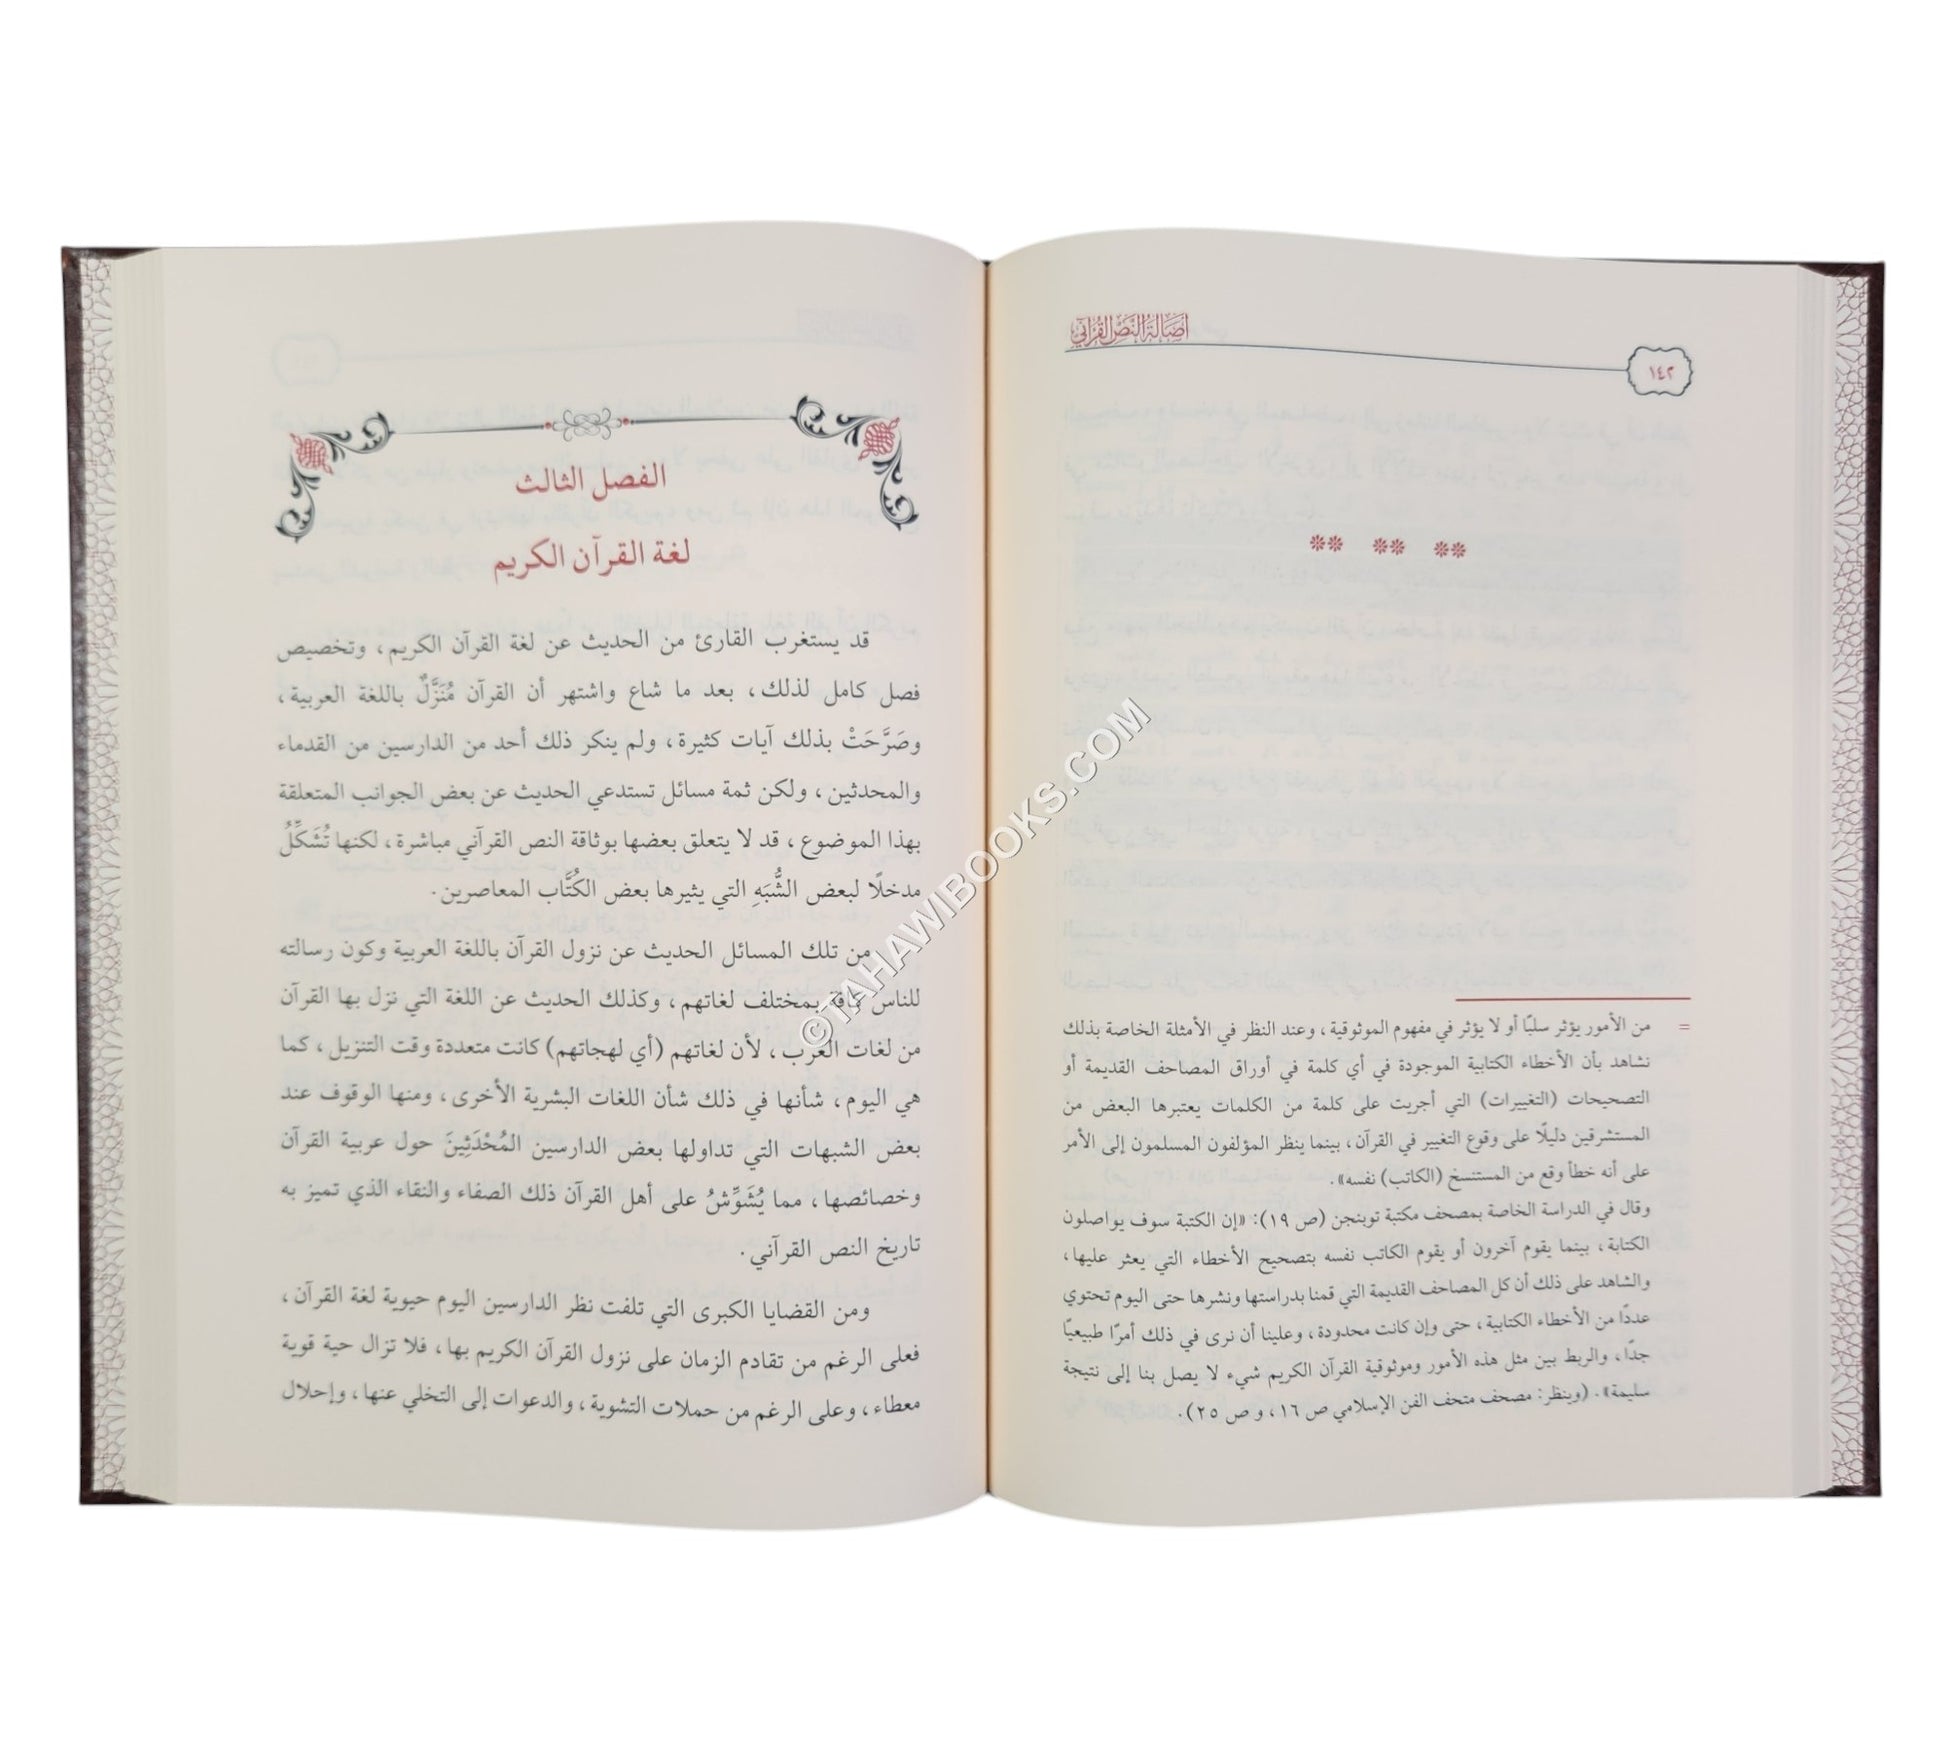 أصالة النص القرآني
١٤٢
** ** **
= من الأمور يؤثر سلبًا أو لا يؤثر في مفهوم الموثوقية، وعند النظر في الأمثلة الخاصة بذلك
نشاهد بأن الأخطاء الكتابية الموجودة في أي كلمة في أوراق المصاحف القديمة أو
التصحيحات (التغييرات) التي أجريت على كلمة من الكلمات يعتبرها البعض من
المستشرقين دليلًا على وقوع التغيير في القرآن، بينما ينظر المؤلفون المسلمون إلى الأمر
على أنه خطأ وقع من المستنسخ (الكاتب) نفسه».
وقال في الدراسة الخاصة بمصحف مكتبة توبنجن (ص ١٩): «إن الكتبة سوف يواصلون
الكتابة، بينما يقوم آخرون أو يقوم الكاتب نفسه بتصحيح الأخطاء التي يعثر عليها،
والشاهد على ذلك أن كل المصاحف القديمة التي قمنا بدراستها ونشرها حتى اليوم تحتوي
عددًا من الأخطاء الكتابية، حتى وإن كانت محدودة، وعلينا أن نرى في ذلك أمرًا طبيعيًا
جدًا، والربط بين مثل هذه الأمور وموثوقية القرآن الكريم شيء لا يصل بنا إلى نتيجة
سليمة». (وينظر: مصحف متحف الفن الإسلامي ص ١٦، و ص ٢٥).
الفصل الثالث
لغة القرآن الكريم
قد يستغرب القارئ من الحديث عن لغة القرآن الكريم، وتخصيص
فصل كامل لذلك، بعد ما شاع واشتهر أن القرآن مُنَزَّلٌ باللغة العربية،
وصَرَّحَتْ بذلك آيات كثيرة، ولم ينكر ذلك أحد من الدارسين من القدماء
والمحدثين، ولكن ثمة مسائل تستدعي الحديث عن بعض الجوانب المتعلقة
بهذا الموضوع، قد لا يتعلق بعضها بوثاقة النص القرآني مباشرة، لكنها تُشَكِّلُ
مدخلًا لبعض الشُّبَهِ التي يثيرها بعض الكُتَّاب المعاصرين.
من تلك المسائل الحديث عن نزول القرآن باللغة العربية وكون رسالته
للناس كافة بمختلف لغاتهم، وكذلك الحديث عن اللغة التي نزل بها القرآن
من لغات العرب، لأن لغاتهم (أي لهجاتهم) كانت متعددة وقت التنزيل، كما
هي اليوم، شأنها في ذلك شأن اللغات البشرية الأخرى، ومنها الوقوف عند
بعض الشبهات التي تداولها بعض الدارسين المُحْدَثِينَ حول عربية القرآن
وخصائصها، مما يُشَوِّشُ على أهل القرآن ذلك الصفاء والنقاء الذي تميز به
تاريخ النص القرآني.
ومن القضايا الكبرى التي تلفت نظر الدارسين اليوم حيوية لغة القرآن،
فعلى الرغم من تقادم الزمان على نزول القرآن الكريم بها، فلا تزال حية قوية
معطاء، وعلى الرغم من حملات التشوية، والدعوات إلى التخلي عنها، وإحلال
©TAHAWIBOOKS.COM